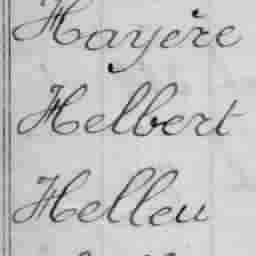 Hayère
Helbert
Helleu